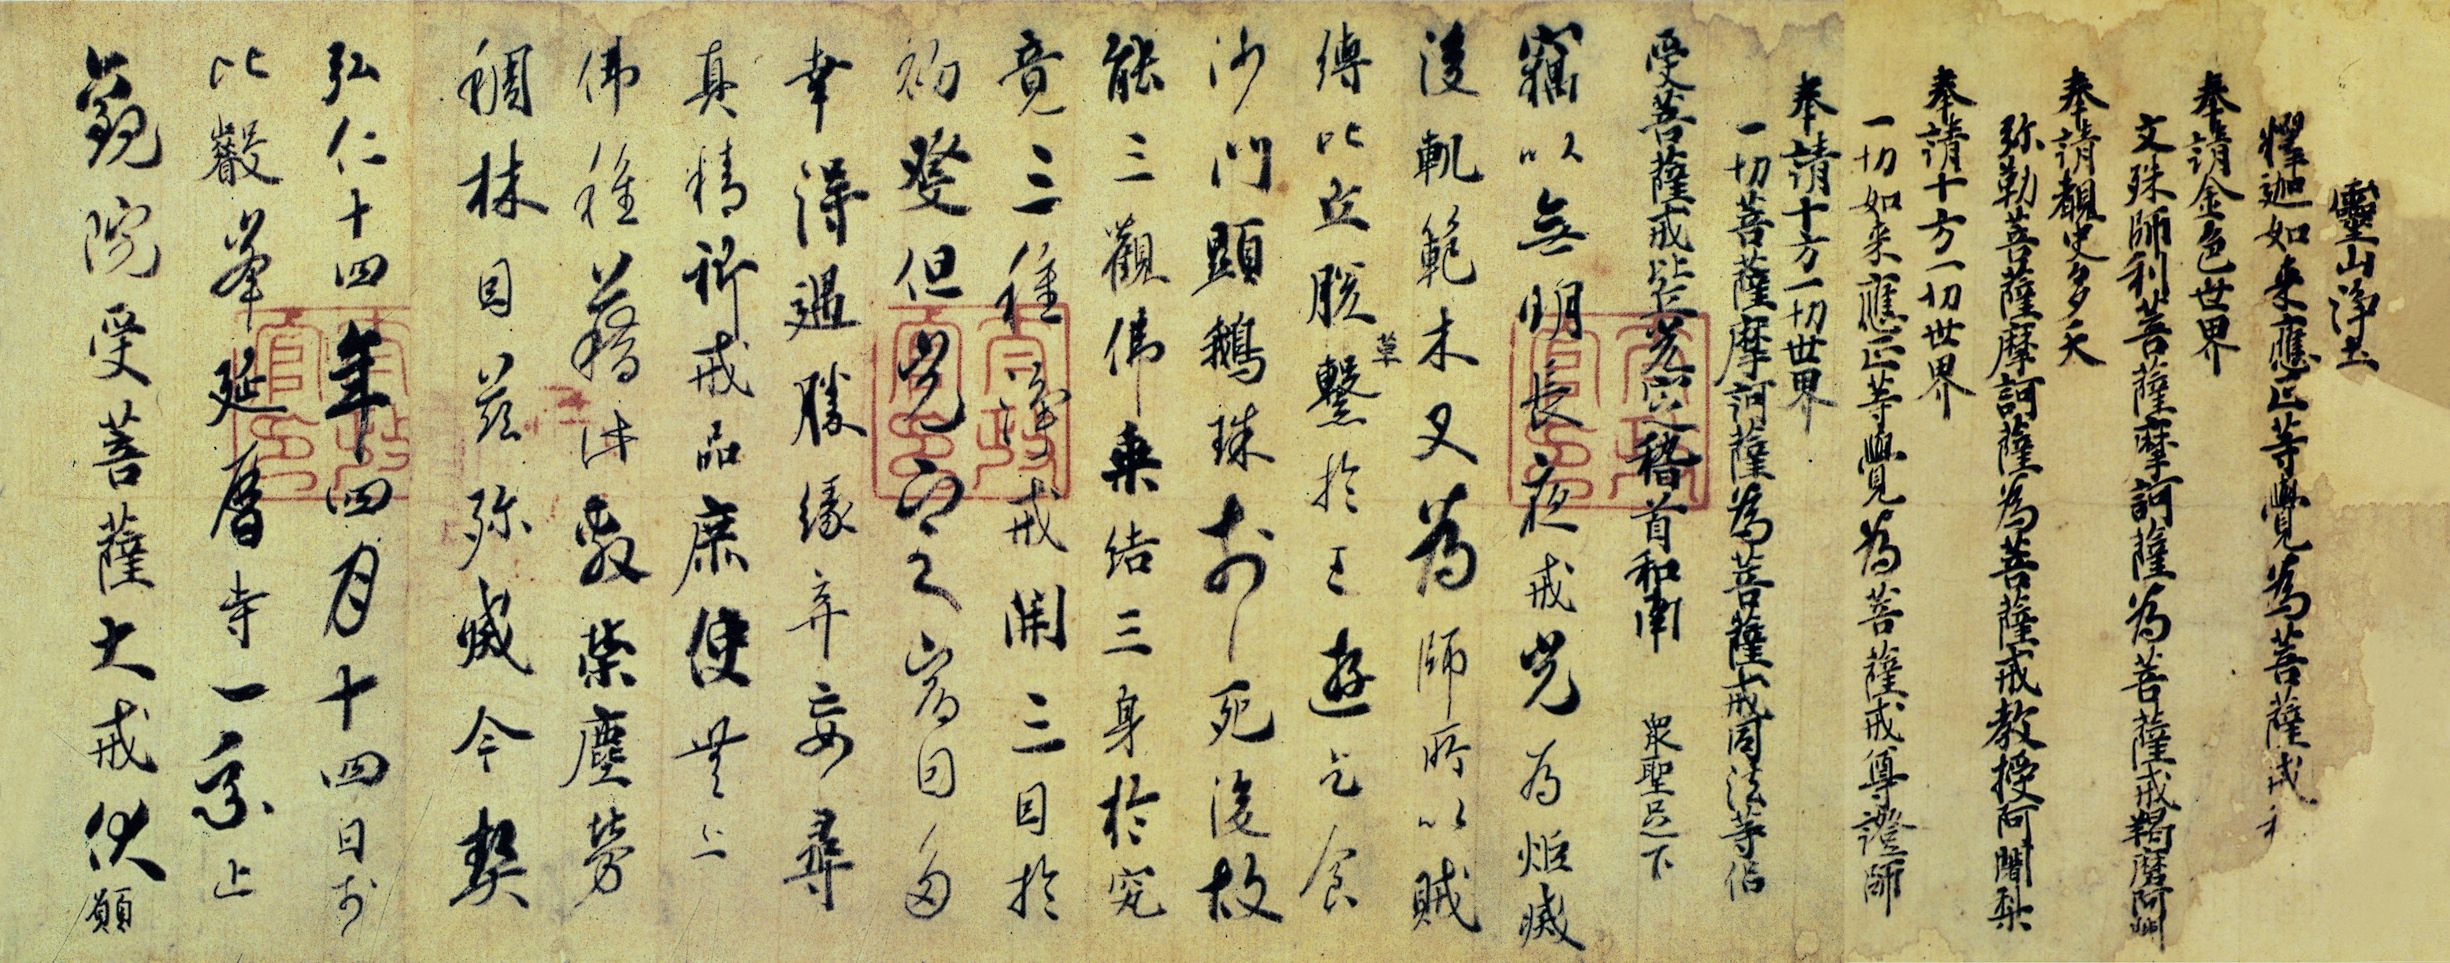 靈山浄土
釋迦如来應正等覺為菩薩戒和
奉請金色世界
文殊師利菩薩摩訶薩為菩薩戒羯磨阿闍
奉請覩史多天
弥勒菩薩摩訶薩為菩薩戒教授阿闍梨
奉請十方一切世界
一切如来應正等覺為菩薩戒尊證師
奉請十方一切世界
一切菩薩摩訶薩為菩薩戒同法等侶
受菩薩戒光定稽首和南 衆聖足下
竊以無明長夜戒光為炬滅
後軌範木叉為師所以賊
縛比丘脱繫草於王遊乞食
沙門顕鵝珠於死後故
能三觀佛乗結三身於究
竟三種戒開三目於
初發但光定宿因多
幸得遇勝縁弃妄尋
真精祈戒品庶使無上
佛種藉此敷榮塵勞
稠林因茲殄滅今契
弘仁十四年四月十四日於
比叡峯延暦寺一乗止
觀院受菩薩大戒伏願